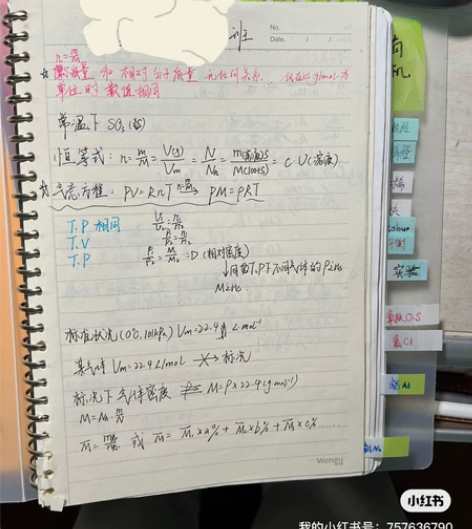 班
No.
Date.
n=m/M
☆ 摩尔质量 和 相对分子质量 无任何关系, 仅在以g/mol为
单位时 数值相同
常温下 SO₃(s)
恒等式: n=m/M=V(g)/Vm=N/NA= =c·V(溶液)
☆ 气态方程: PV=RnT PM=ρRT
T.P 相同 V₁/V₂=n₁/n₂
T.V P₁/P₂=n₁/n₂
T.P ρ₁/ρ₂=M₁/M₂=D (相对密度)
同T.P下不同气体的ρ之比
M之比
标准状况(0℃,101kPa) Vm=22.4 L·mol⁻¹
某气体 Vm=22.4L/mol 标况
标况下气体密度 M=ρ×22.4(g·mol⁻¹)
M=NA·
M̄= 或 M̄=M₁×a%+M₂×b%+M₃×c%……
Wengu
实验
小红书
我的小红书号: 757636790